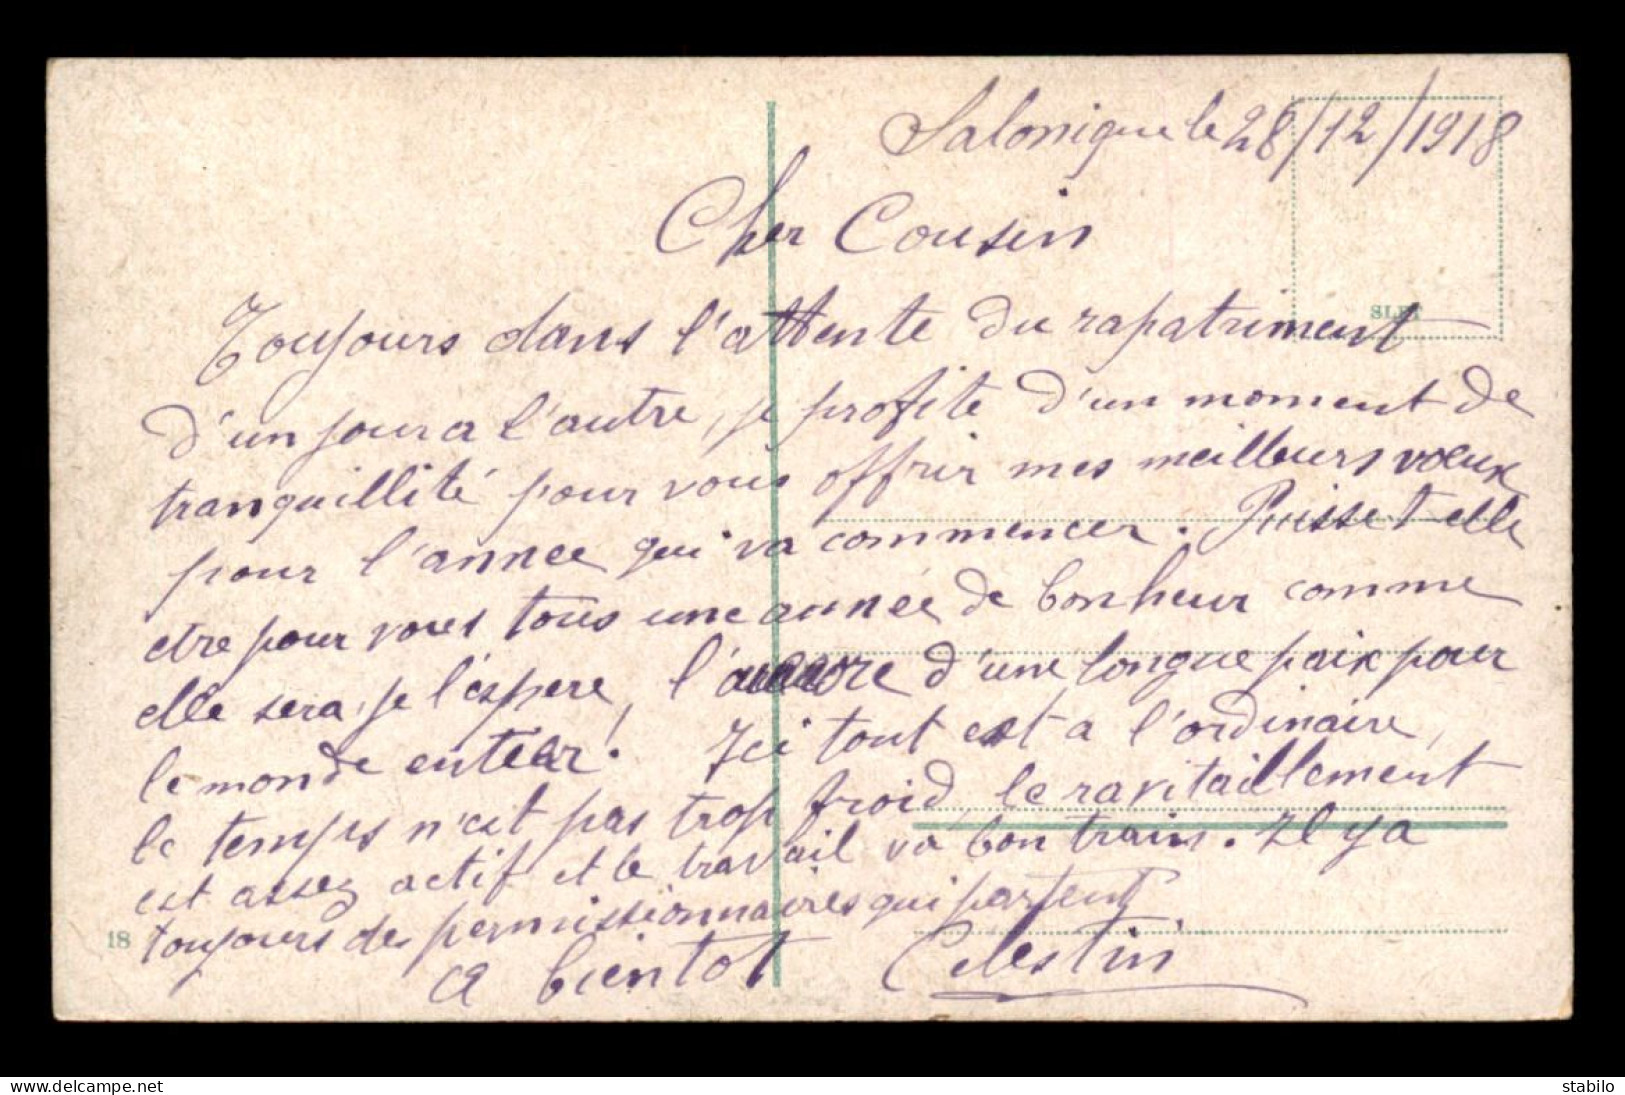 Salonique le 28/12/1918
Cher Cousin
Toujours dans l'attente du rapatriment
d'un jour a l'autre, je profite d'un moment de
tranquillité pour vous offrir mes meilleurs vœux
pour l'annee qui va commencer. Puisse t elle
etre pour vous tous une année de bonheur comme
elle sera, je l'espere, l'aurore d'une longue paix pour
le monde entier! Ici tout est a l'ordinaire,
le temps n'est pas trop froid, le ravitaillement
est assez actif et le travail va bon train. Il y a
toujours des permissionnaires qui partent.
A bientot Celestin
18
delcampe.net
stabilo